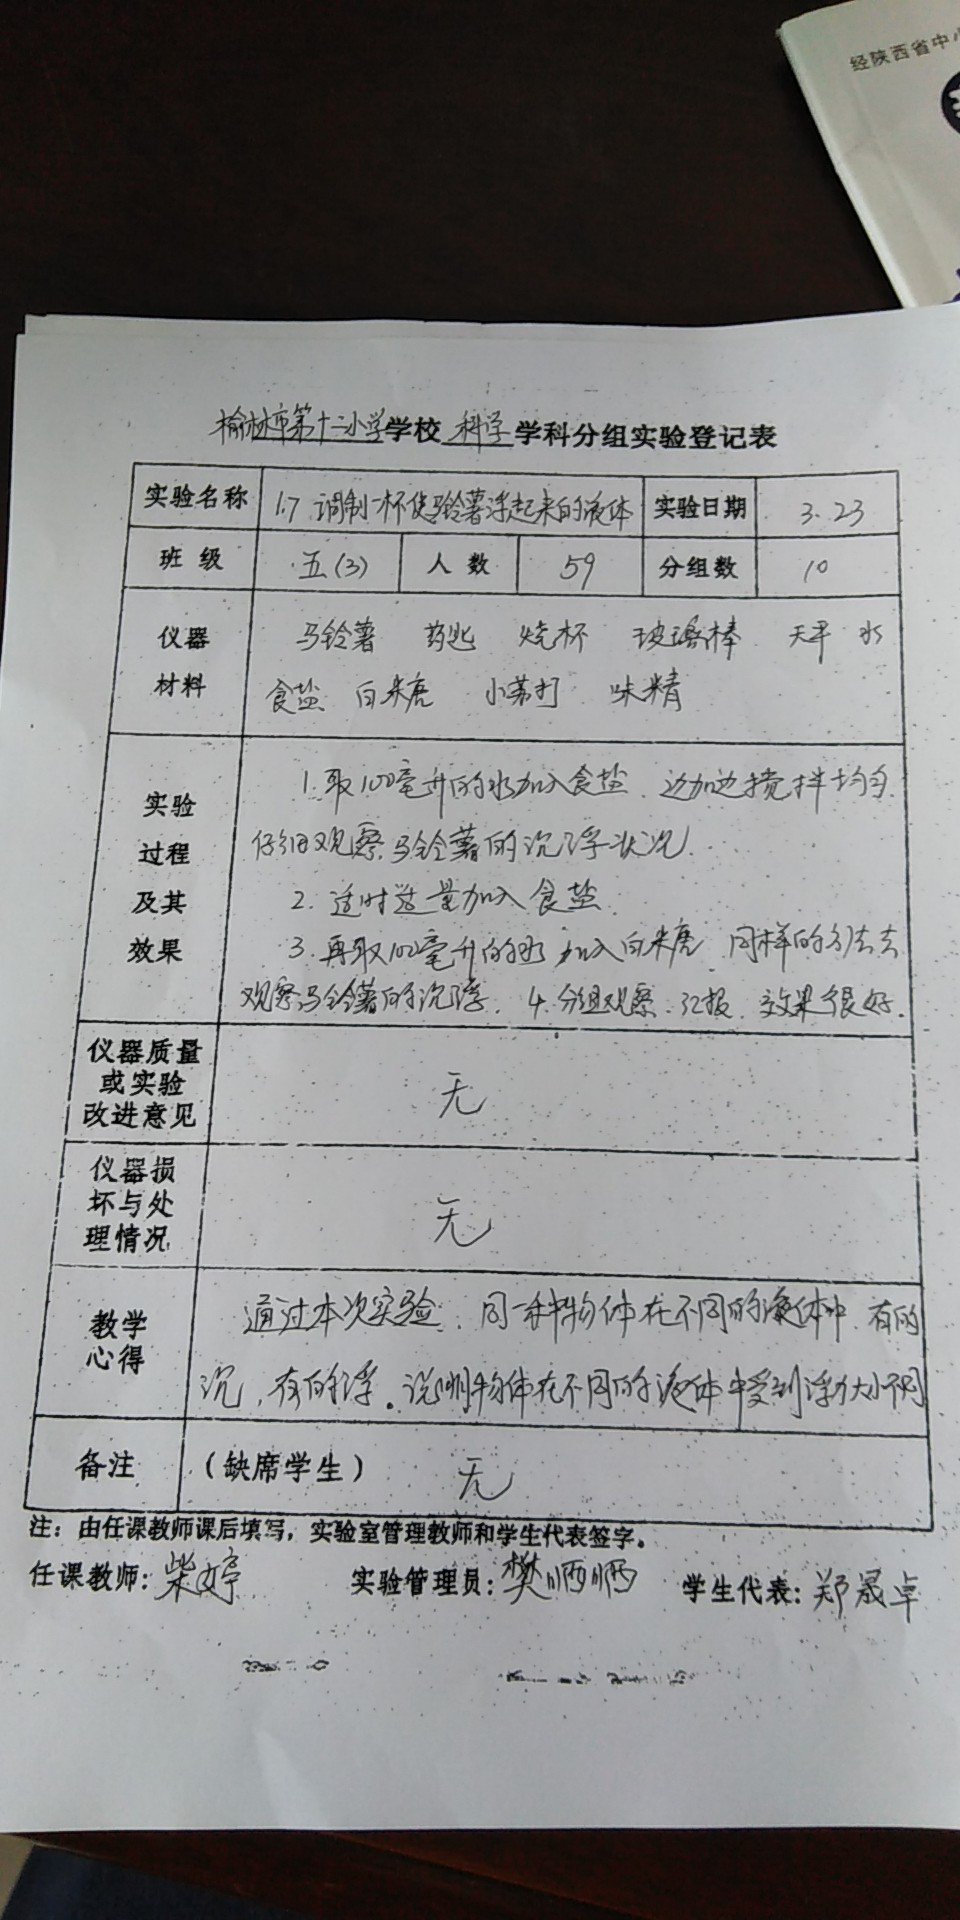 经陕西省中小
榆林市第十二小学学校 科学 学科分组实验登记表
实验名称 1.7 调制一杯使马铃薯浮起来的液体 实验日期 3.23
班 级 五(3) 人 数 59 分组数 10
仪器材料
马铃薯 药匙 烧杯 玻璃棒 天平 水
食盐 白米唐 小苏打 味精
实验过程及其效果
1.取100毫升的水加入食盐、边加边搅拌均匀.
仔细观察马铃薯的沉浮状况.
2.适时适量加入食盐.
3.再取100毫升的水加入白米唐 同样的方法去
观察马铃薯的沉浮. 4.分组观察、汇报、效果很好.
仪器质量
或实验
改进意见
无
仪器损
坏与处
理情况
无
教学
心得
通过本次实验、同一种物体在不同的液体中、有的
沉、有的浮。说明物体在不同的液体中受到浮力大小不同
备注 (缺席学生) 无
注：由任课教师课后填写，实验室管理教师和学生代表签字。
任课教师：柴婷 实验管理员：樊 学生代表：郑晟卓